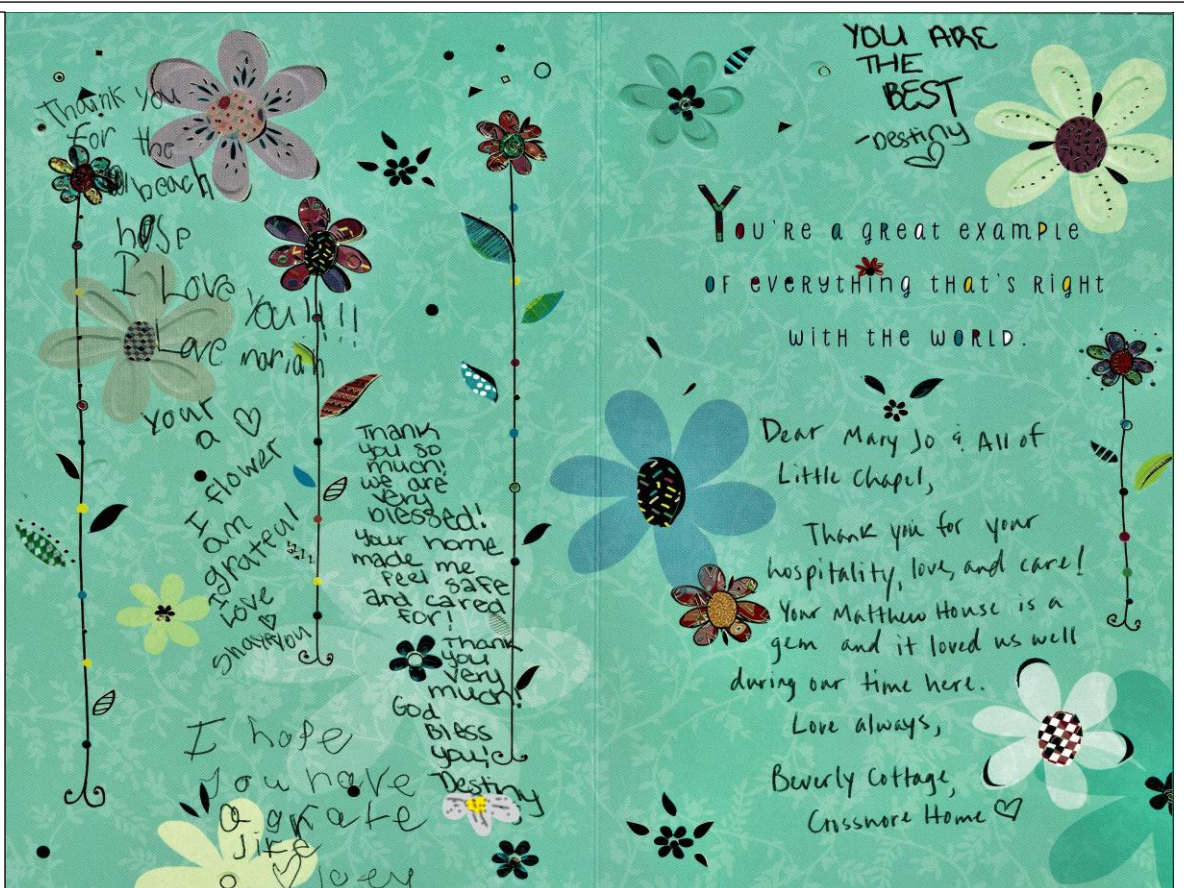 Thank you
for the
beach
hose
I Love
You!!!!
Love mariah
your
a ♡
flower
I
am
grateul
Love
Thank
you so
much!
we are
very
blessed!
Your home
made me
feel safe
and cared
for!
Thank
you
very
much!
God
Bless
you!
Destiny
I hope
you have
a grate
joey
YOU ARE
THE
BEST
-Destiny
♡
You're a great example
of everything that's right
with the world.
Dear Mary Jo & All of
Little Chapel,
Thank you for your
hospitality, love, and care!
Your Matthew House is a
gem and it loved us well
during our time here.
Love always,
Beverly Cottage,
Crossnore Home ♡